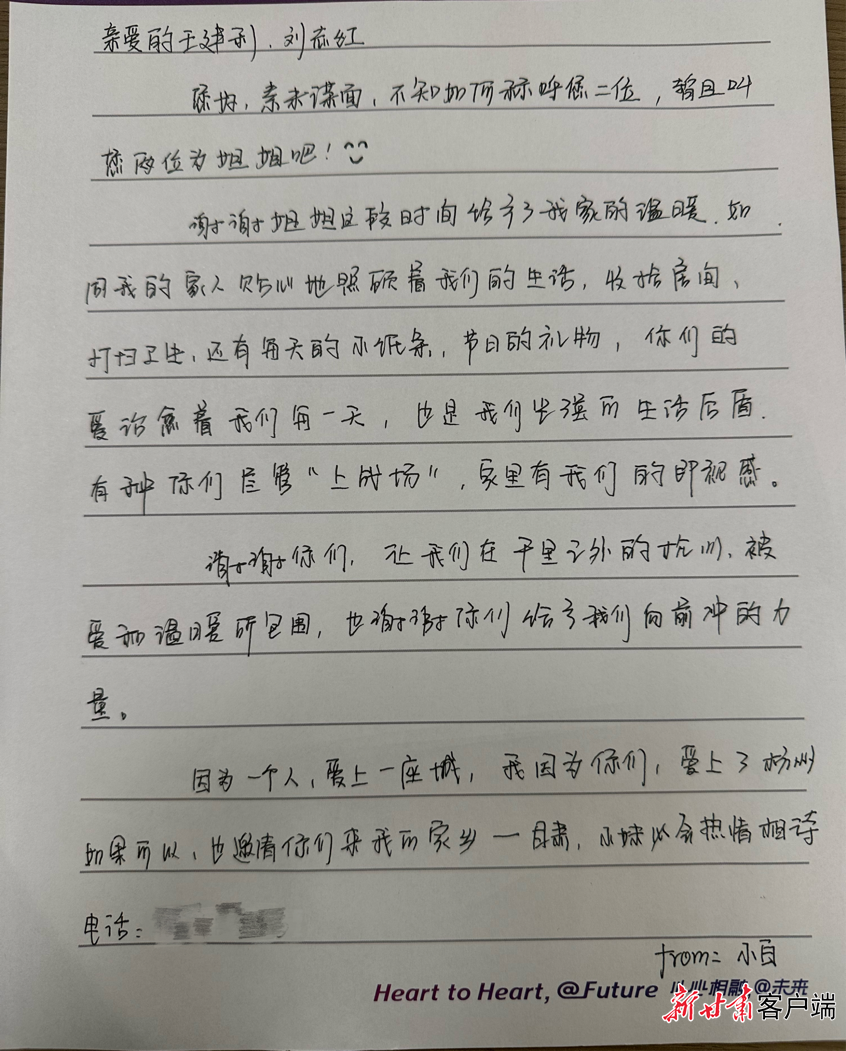 亲爱的王建利、刘志红
你好，素未谋面，不知如何称呼您二位，暂且叫
您两位为姐姐吧！
谢谢姐姐这段时间给予了我家的温暖，如
同我的家人贴心地照顾着我们的生活，收拾房间、
打扫卫生，还有每天的小纸条，节日的礼物，你们的
爱治愈着我们每一天，也是我们坚强的生活后盾.
有种你们尽管“上战场”，家里有我们的即视感。
谢谢你们，让我们在千里之外的杭州，被
爱和温暖所包围，也谢谢你们给予我们向前冲的力
量。
因为一个人，爱上一座城，我因为你们，爱上了杭州
如果可以，也邀请你们来我的家乡—甘肃，小妹必会热情相待
电话：
from: 小白
Heart to Heart, @Future 心心相融,@未来
新甘肃客户端